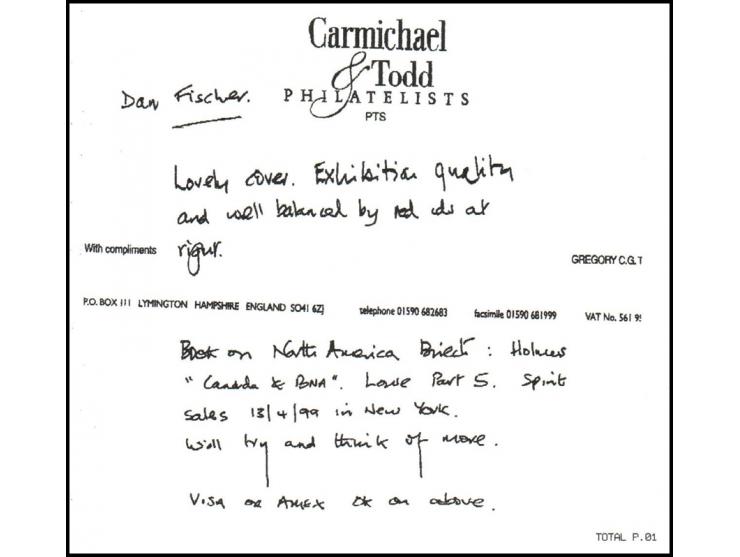 Carmichael
& Todd
PHILATELISTS
PTS
Dan Fischer.
Lovely cover. Exhibition quality
and well balanced by red cds at
right.
With compliments
GREGORY C.G.T
P.O. BOX 111 LYMINGTON HAMPSHIRE ENGLAND SO41 6ZJ telephone 01590 682683 facsimile 01590 681999 VAT No. 561 9
on North America : Holmes
"Canada & BNA". Lowe Part 5. Spirit
Sales 13/4/99 in New York.
Will try and think of more.
Visa or AMEX OK on above.
TOTAL P.01